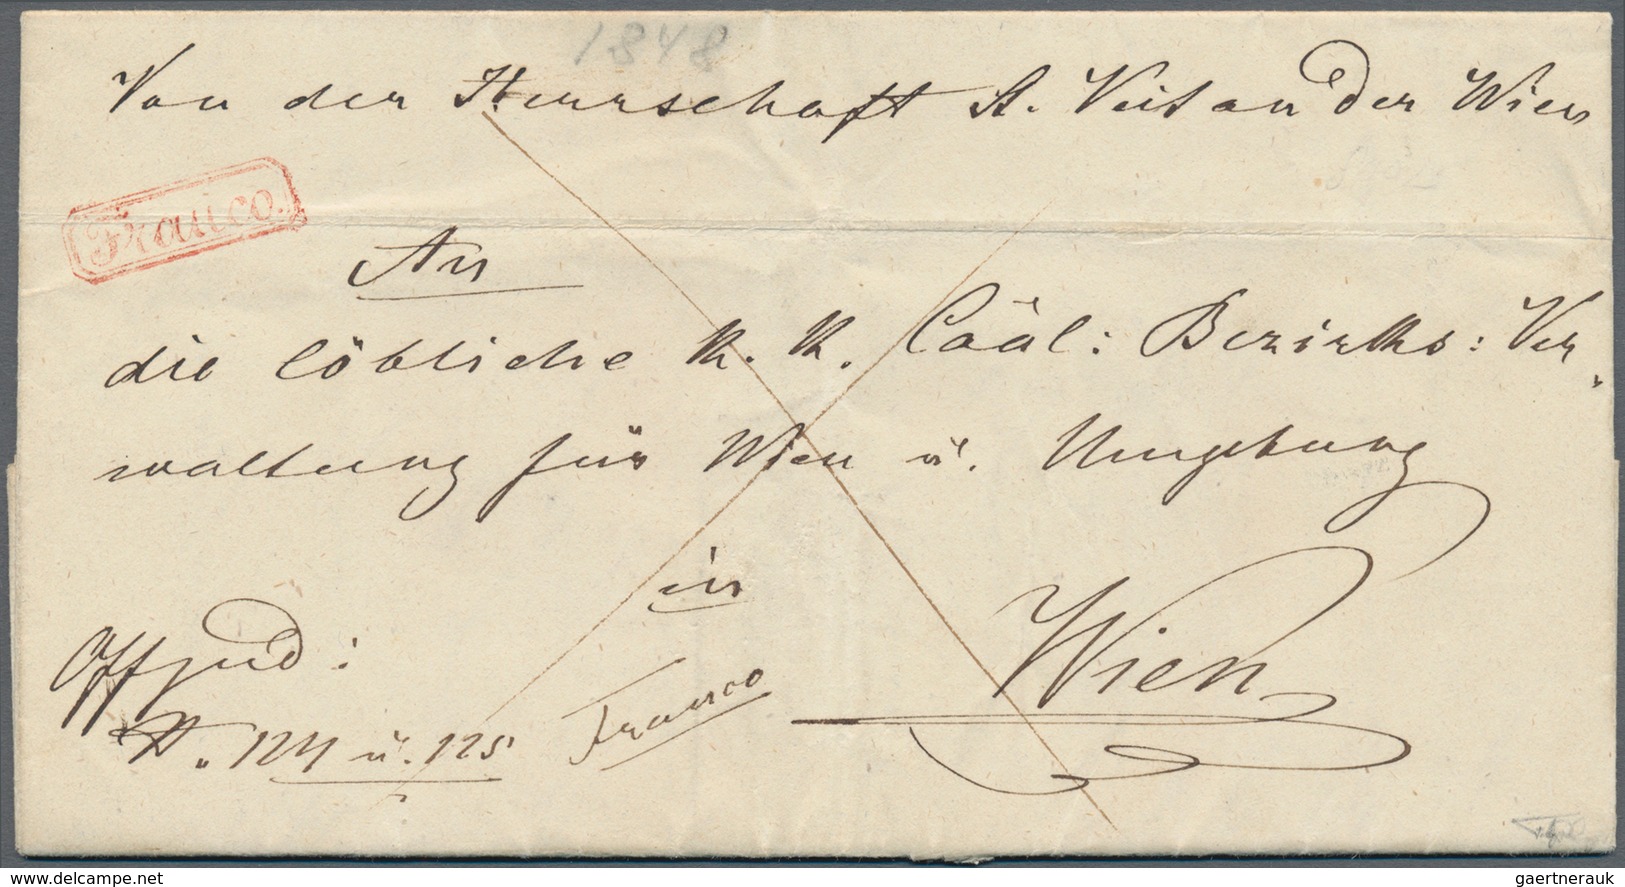 1848
Von der Herrschaft St. Veit an der Wien
Franco.
An
die löbliche K. K. Cääl: Bezirks: Ver
waltung für Wien u. Umgebung
in
Wien
Offzud:
N. 124 u. 125
Franco
www.delcampe.net
gaertnerauk